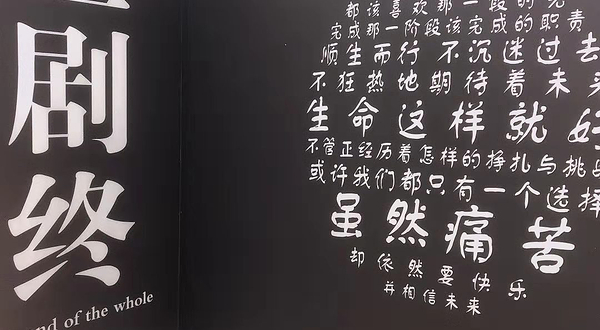 剧
终
nd of the whole
都该喜欢那一段的
完成那一阶段该完成的职责
顺生而行 不沉迷过去
不狂热地期待着未来
生命这样就好
不管正经历着怎样的挣扎与挑
或许我们都只有一个选择
虽然痛苦
却依然要快乐
并相信未来